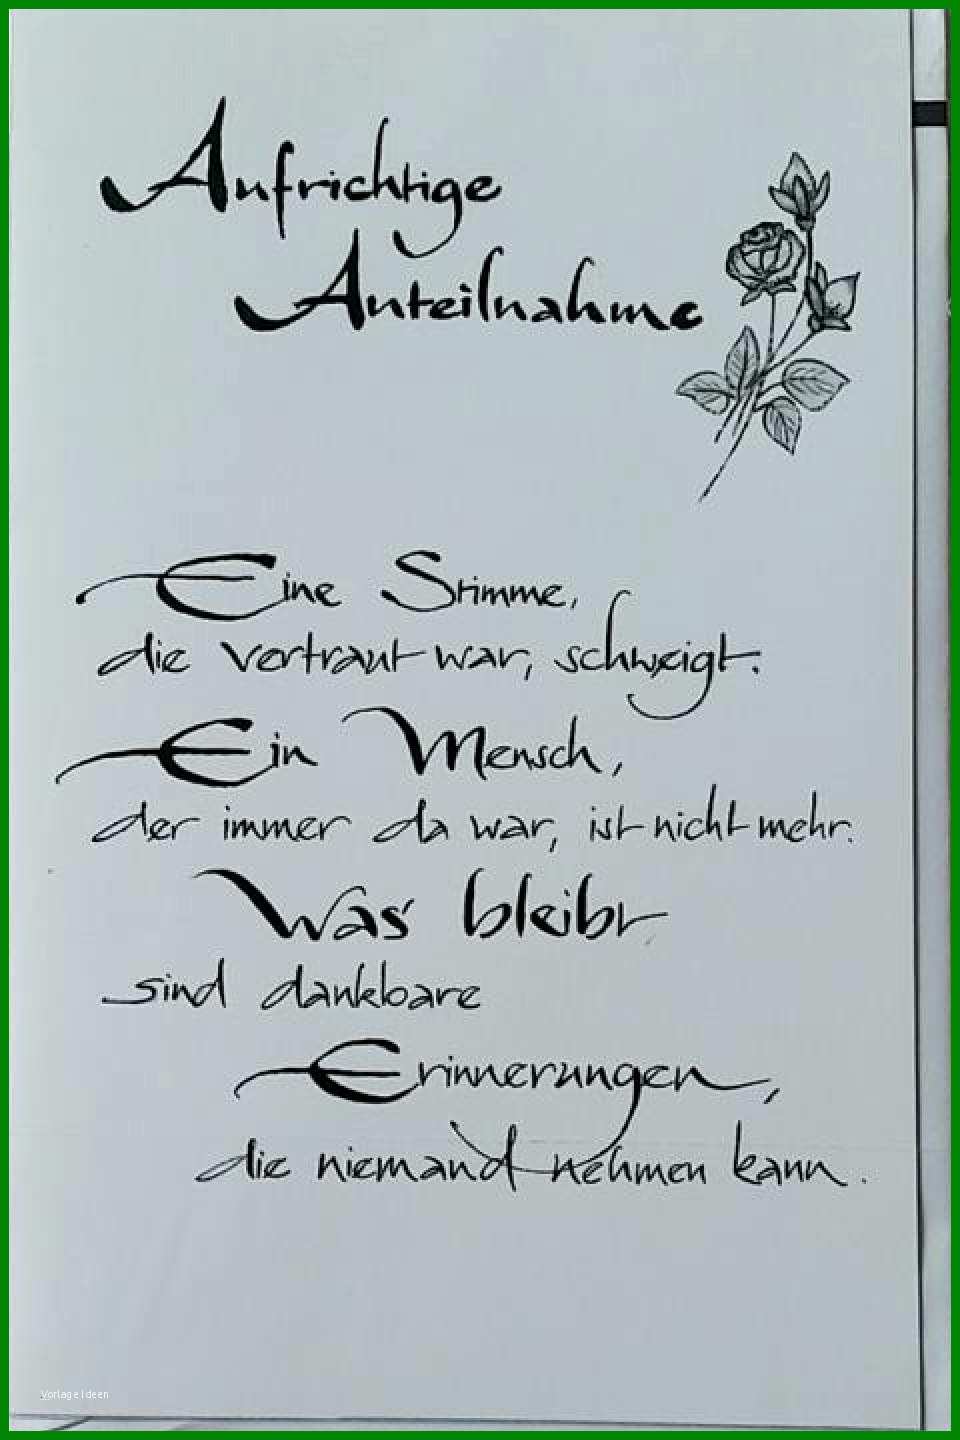 Aufrichtige
Anteilnahme
Eine Stimme,
die vertraut war, schweigt.
Ein Mensch,
der immer da war, ist nicht mehr.
Was bleibt
sind dankbare
Erinnerungen,
die niemand nehmen kann.
Vorlage Ideen